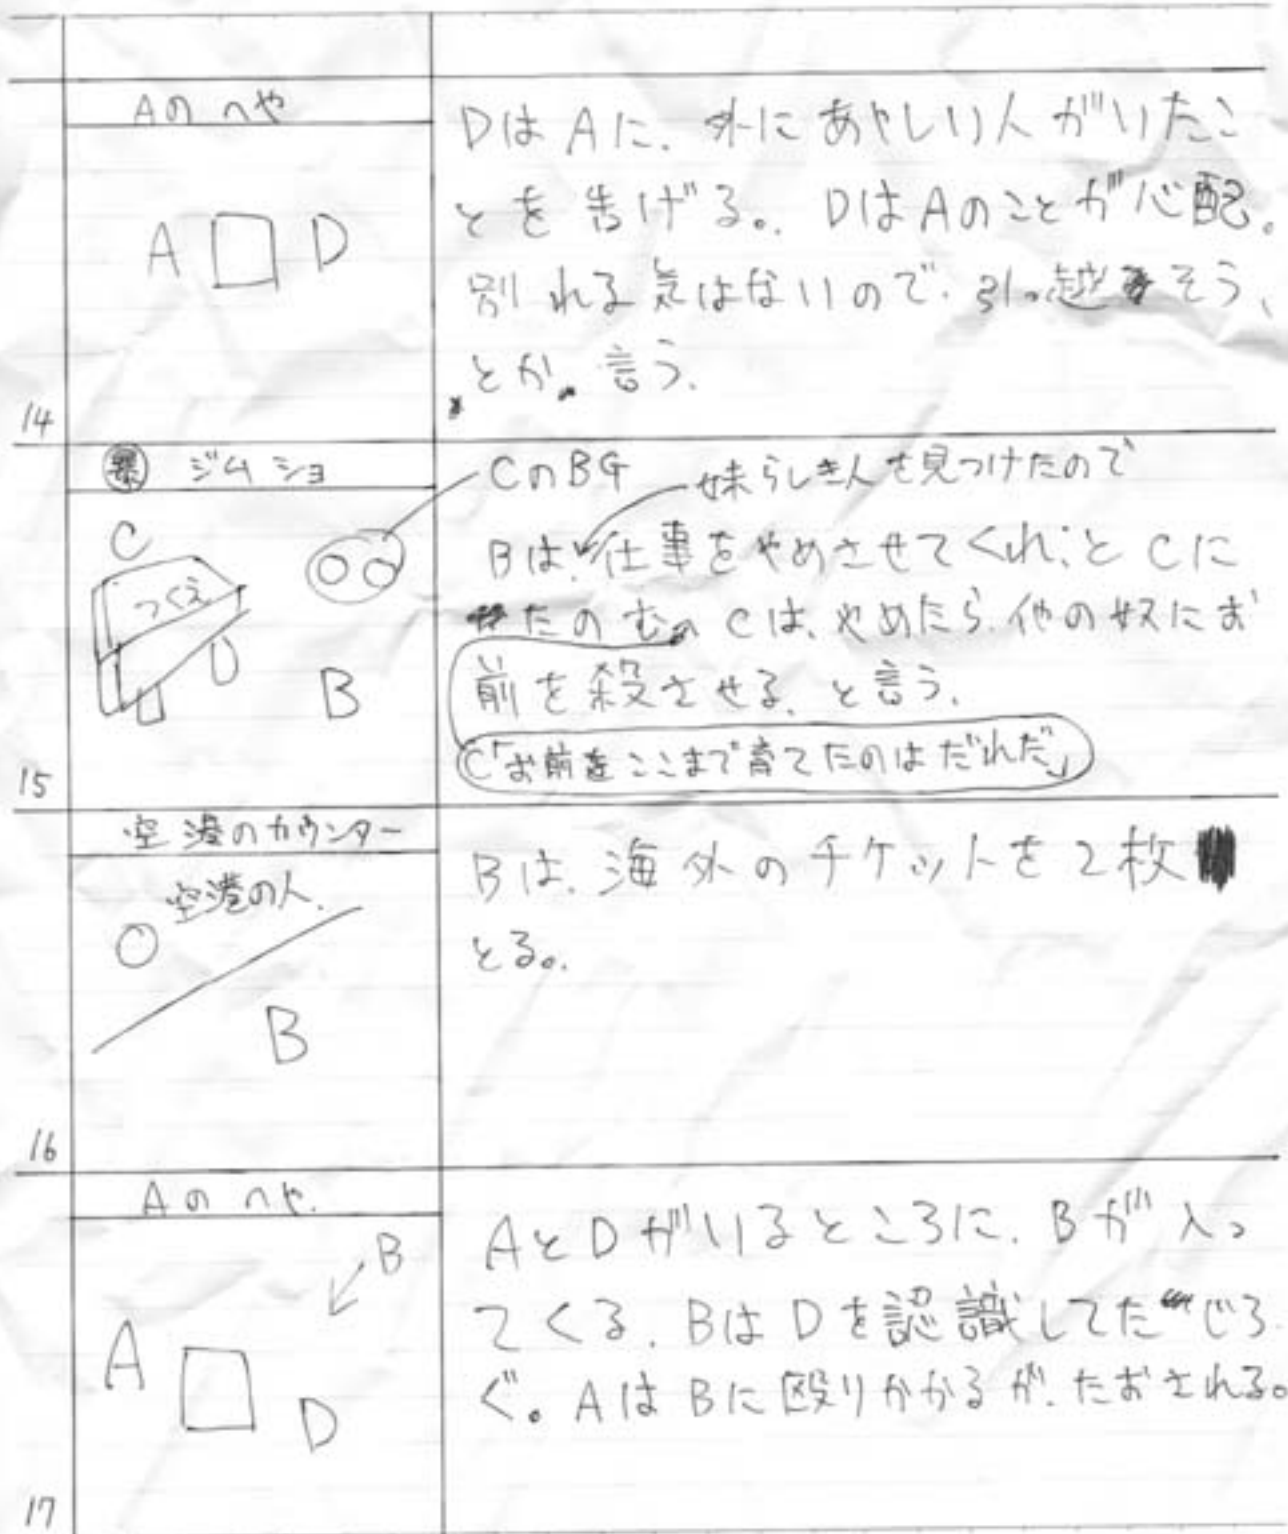 Aのへや
DはAに、外にあやしい人がいたこ
とを告げる。DはAのことが心配。
別れる気はないので、引っ越そう、
とか、言う。
A D
14
暴 ジムショ
CのBG
妹らしき人を見つけたので
Bは、仕事をやめさせてくれ、とCに
たのむ。Cは、やめたら、他の奴にお
前を殺させる、と言う。
C「お前をここまで育てたのはだれだ」
C
つくえ
D
B
15
空港のカウンター
Bは、海外のチケットを2枚
とる。
空港の人
B
16
Aのへや
AとDがいるところに、Bが入っ
てくる。BはDを認識してたじろ
ぐ。AはBに殴りかかるが、たおされる。
B
A
D
17